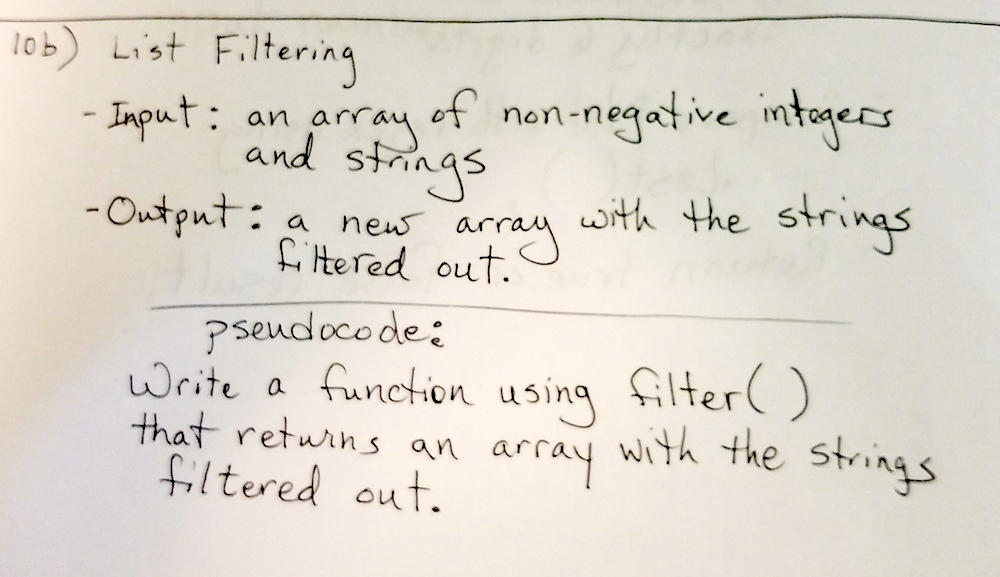 10b) List Filtering
- Input: an array of non-negative integers
and strings
- Output: a new array with the strings
filtered out.
pseudocode:
Write a function using filter( )
that returns an array with the strings
filtered out.